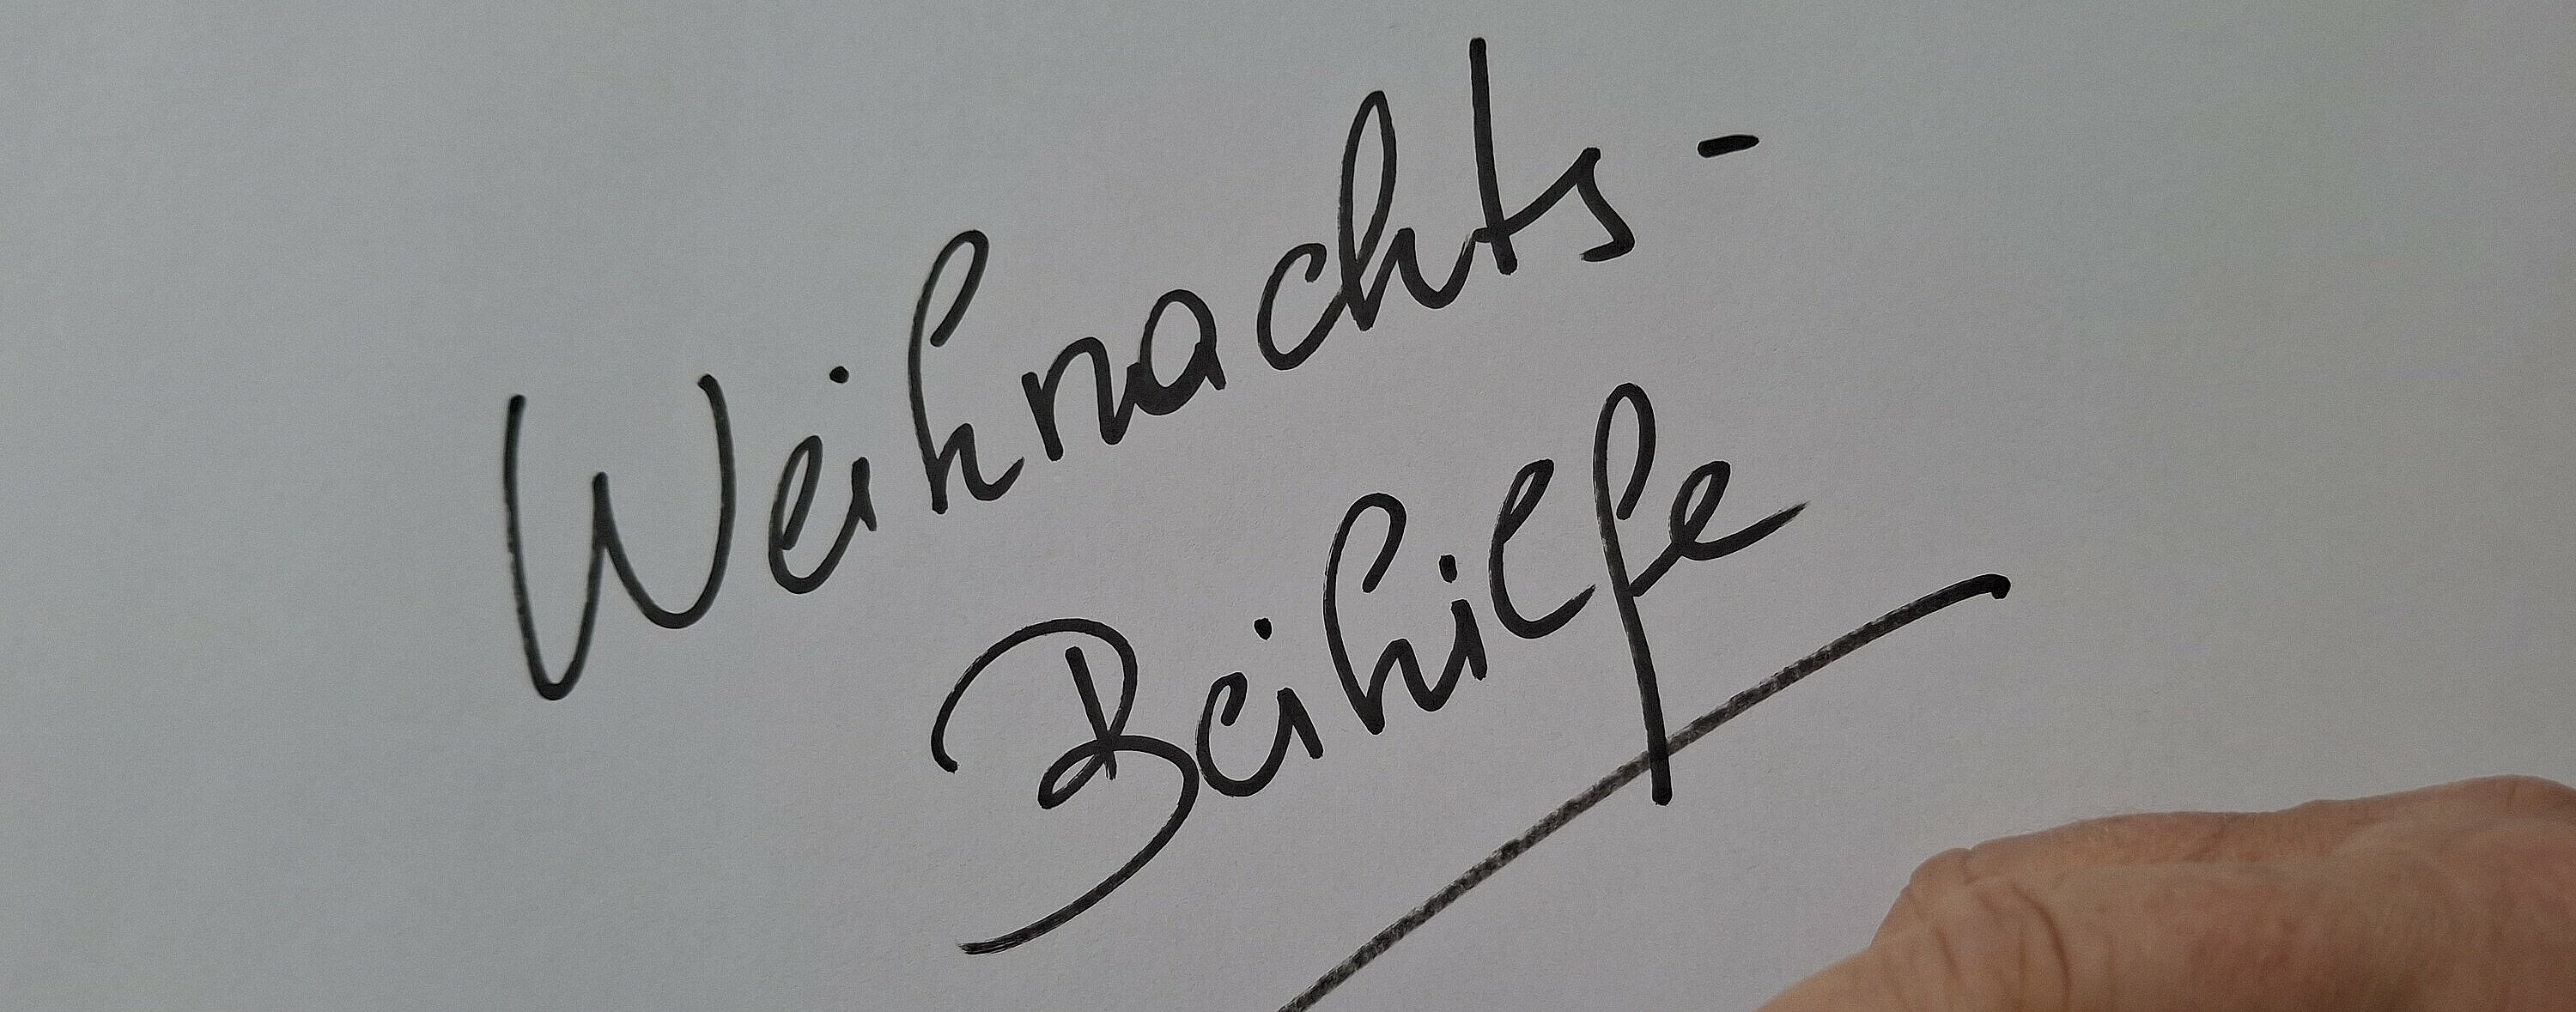 Weihnachts-
Beihilfe